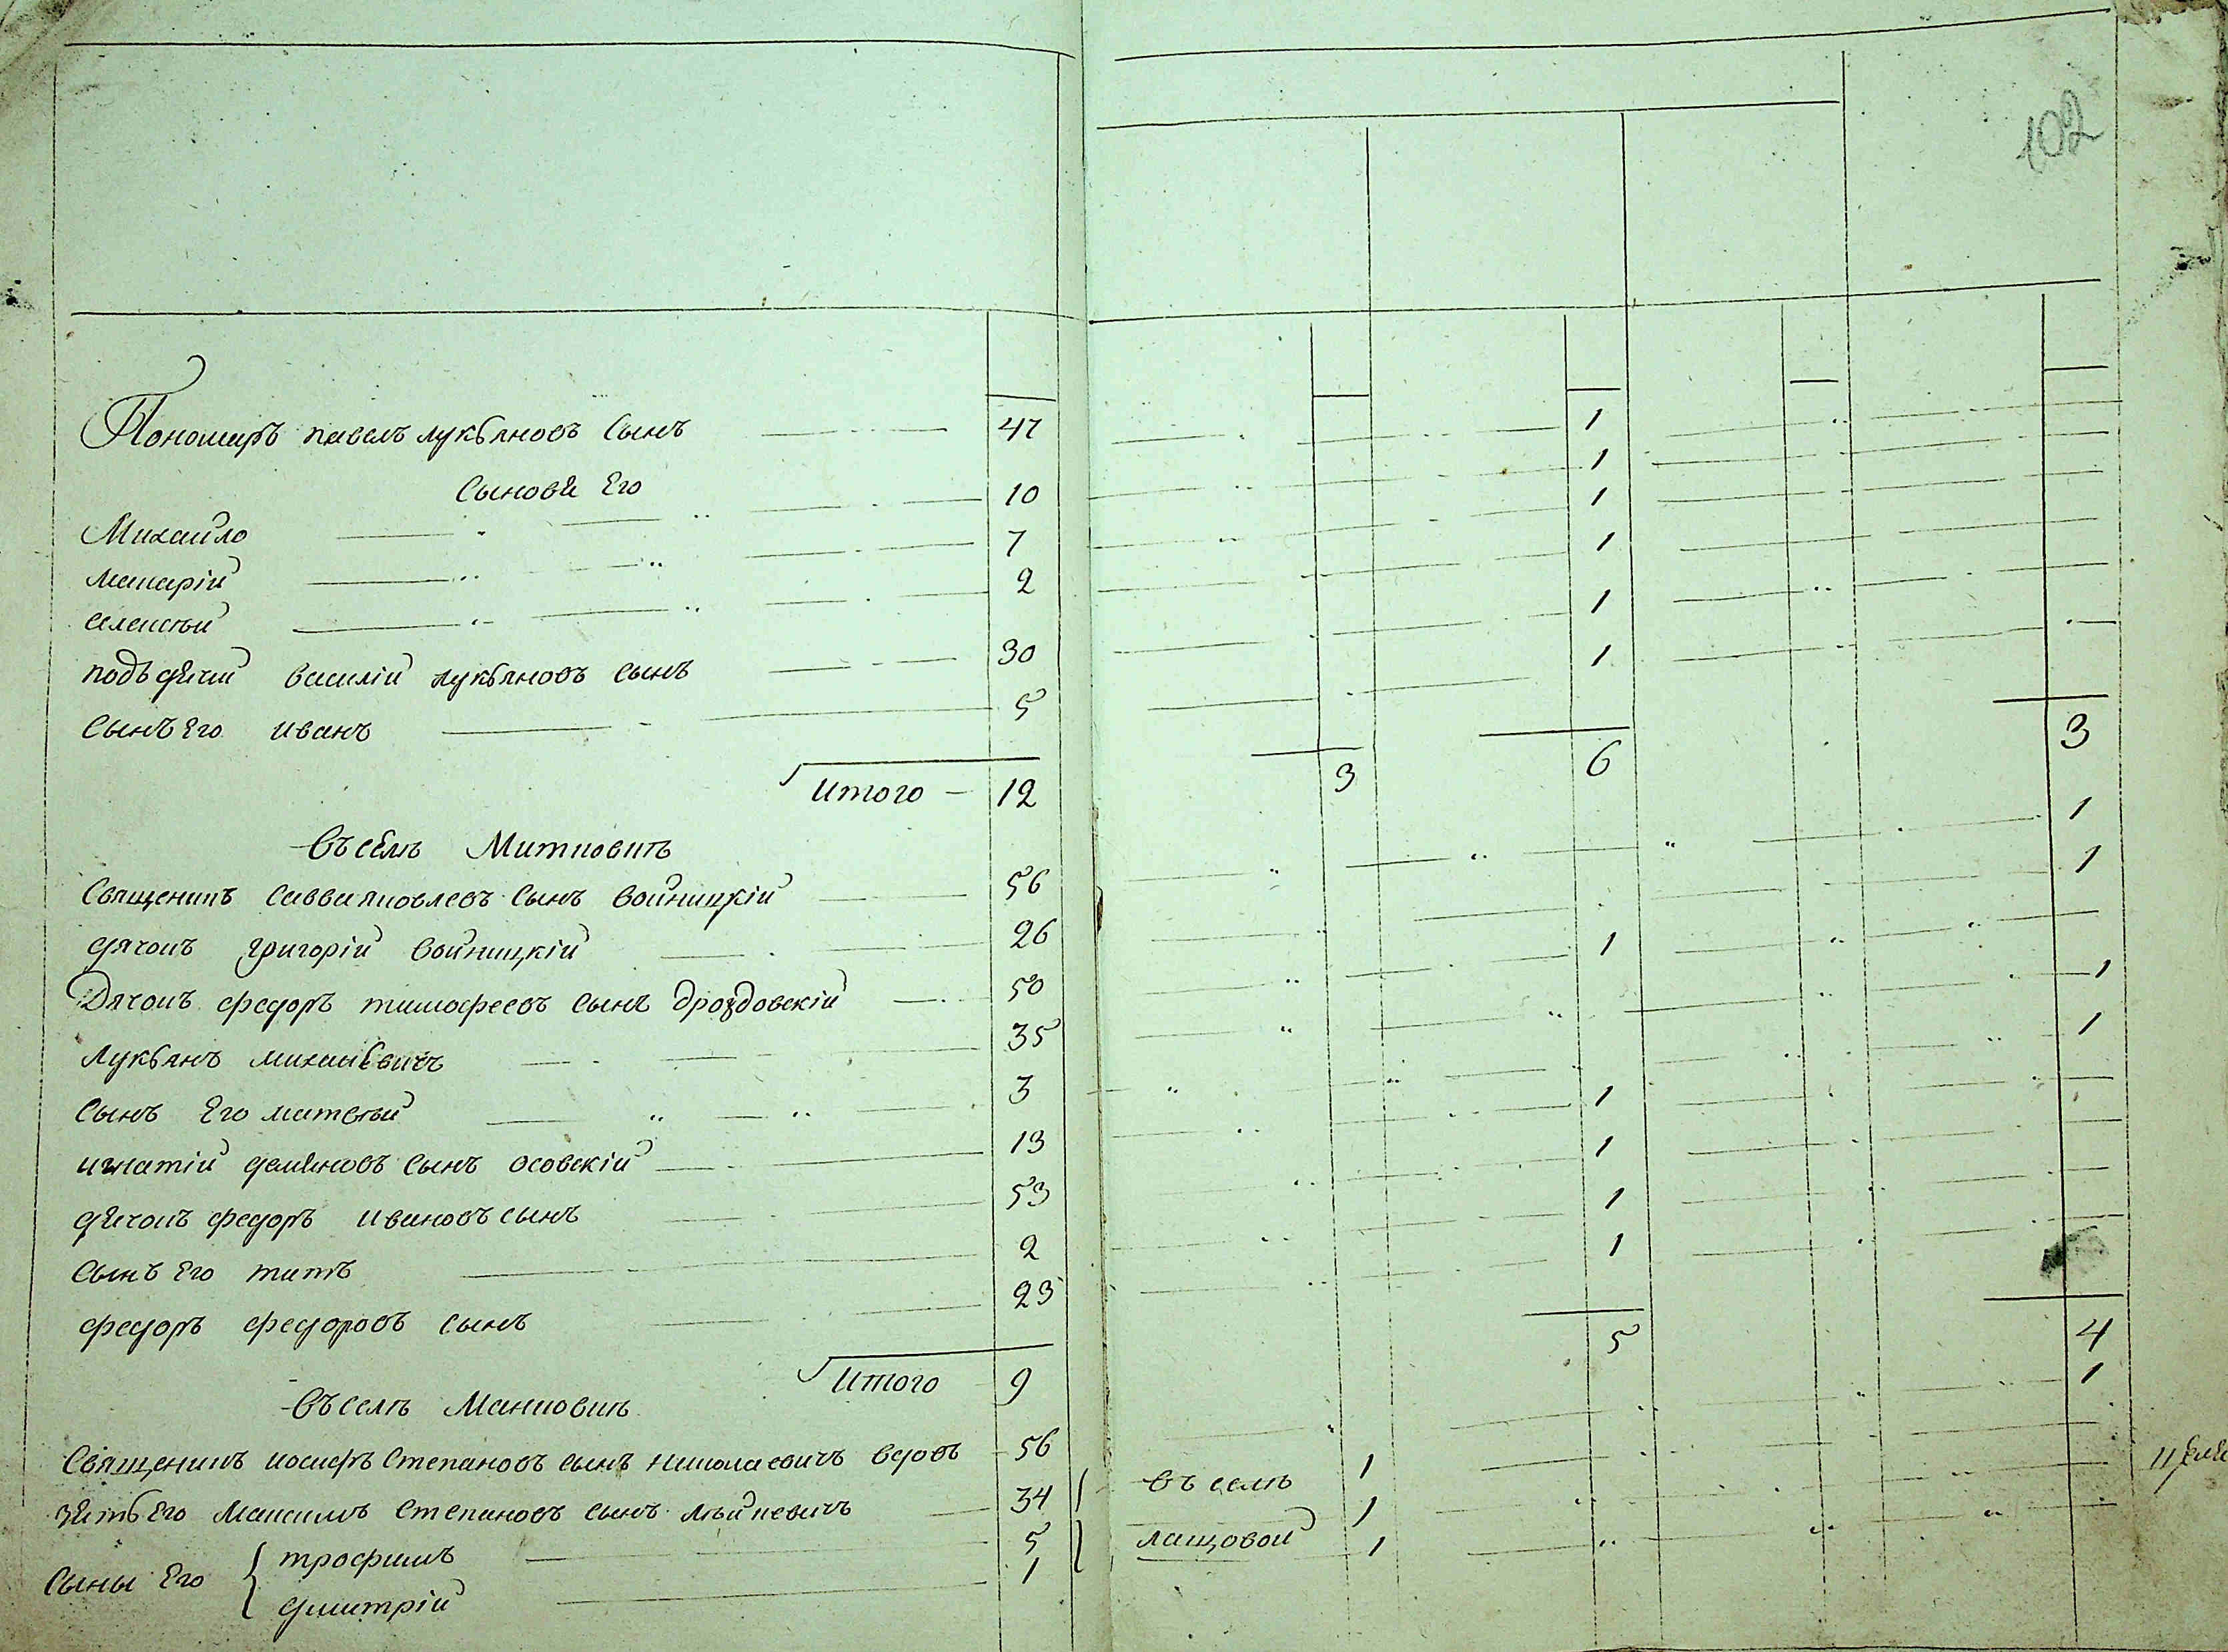 102
Пономарь павелъ лукьяновъ сынъ 47 1
сыновя Его
Михайло 10 1
макарій 7 1
алексѣй 2 1
подъячій василій лукьяновъ сынъ 30 1
сынъ Его иванъ 5 1
Итого 12 3 6 3
въ селѣ Митковкѣ
священикъ савва яковлевъ сынъ войницкій 56 1
дячокъ григорій войницкій 26 1
Дячокъ федоръ тимофеевъ сынъ дроздовскій 50 1
лукьянъ 35 1
сынъ Его матвѣй 3 1
игнатій демяновъ сынъ осовскій 13 1
дячокъ федоръ ивановъ сынъ 53 1
сынъ Его титъ 2 1
федоръ федоровъ сынъ 23 1
Итого 9 5 4
въ селѣ Манковкѣ
Священикъ иосифъ Степановъ сынъ николаевичъ вдовъ 56 1
зять Его Максимъ Степановъ сынъ 34 въ селѣ 1
Сыны Его { трофимъ 5 лащовой 1
дмитрій 1 1